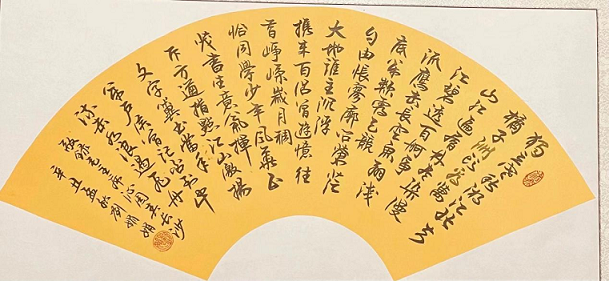 独立寒秋湘江北去
橘子洲头看万
山红遍层林尽染漫
江碧透百舸争
流鹰击长空鱼翔浅
底万类霜天竞自
由怅寥廓问苍茫
大地谁主沉浮
携来百侣曾游忆往
昔峥嵘岁月稠
恰同学少年风华正
茂书生意气挥
斥方遒指点江山激扬
文字粪土当年万
户侯曾记否到中
流击水浪遏飞舟
敬录毛主席沁园春长沙
辛丑孟秋刘娟